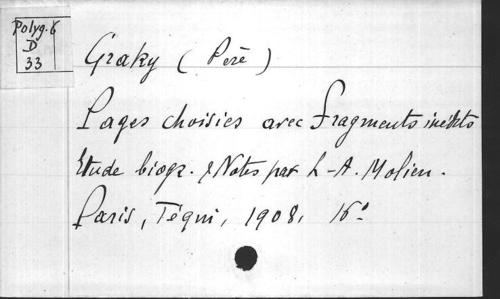 Polyg. 6
D
33
Graky (Père)
Pages choisies avec Fragments inédits
Etude biogr. & Notes par L-A. Molien.
Paris, Téqui, 1908, 16°